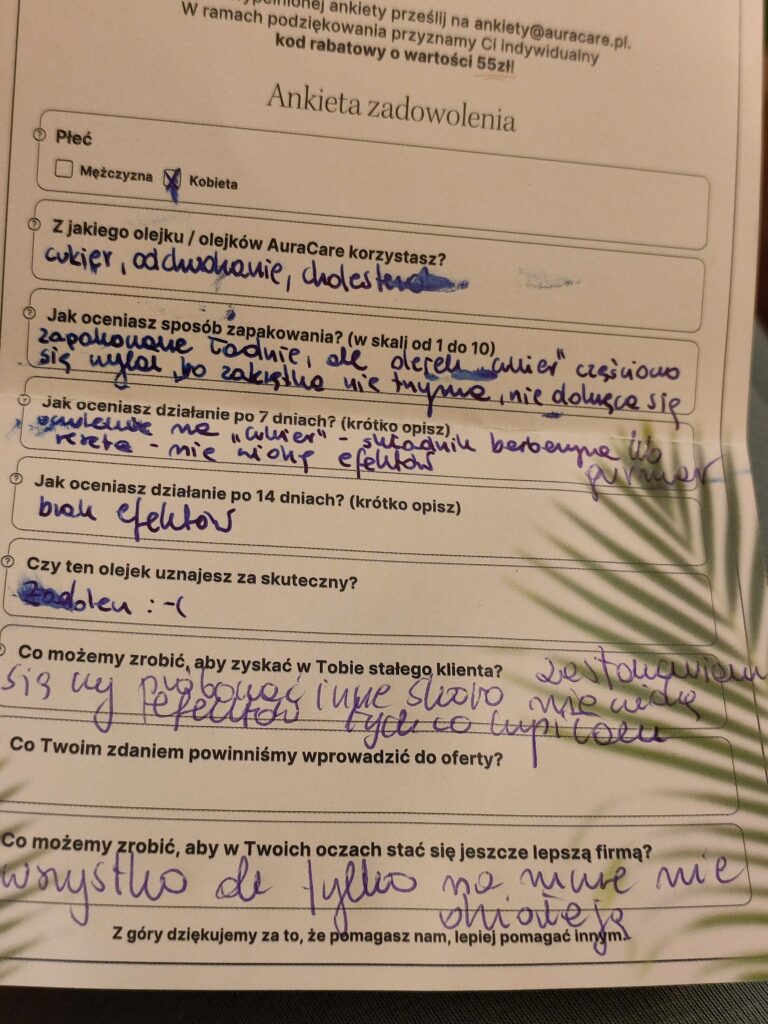 wypełnionej ankiety prześlij na ankiety@auracare.pl.
W ramach podziękowania przyznamy Ci indywidualny
kod rabatowy o wartości 55zł!
Ankieta zadowolenia
Płeć
Mężczyzna Kobieta
Z jakiego olejku / olejków AuraCare korzystasz?
cukier, odchudzanie, cholesterol
Jak oceniasz sposób zapakowania? (w skali od 1 do 10)
zapakowane ładnie, ale olejek "cukier" częściowo
się wylał, bo zakrętka nie trzyma, nie dokręca się
Jak oceniasz działanie po 7 dniach? (krótko opisz)
na "cukier" - składnik berberyna lub gurmar
reszta - nie widzę efektów
Jak oceniasz działanie po 14 dniach? (krótko opisz)
brak efektów
Czy ten olejek uznajesz za skuteczny?
żaden :-(
Co możemy zrobić, aby zyskać w Tobie stałego klienta? zastanawiam
się czy próbować inne skoro nie widzę
efektów tych co kupiłam
Co Twoim zdaniem powinniśmy wprowadzić do oferty?
Co możemy zrobić, aby w Twoich oczach stać się jeszcze lepszą firmą?
wszystko ok tylko na mnie nie
działają
Z góry dziękujemy za to, że pomagasz nam, lepiej pomagać innym.